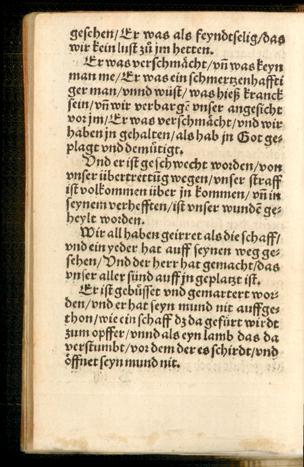 gesehen/Er was als feyndtselig/das
wir kein lust zů jm hetten.
Er was verschmächt/vñ was keyn
man me/Er was ein schmertzenhaffti
ger man/vnnd wüst/was hieß kranck
sein/vñ wir verbargē vnser angesicht
vor jm/Er was verschmächt/vnd wir
haben jn gehalten/als hab jn Got ge-
plagt vnd demütigt.
Vnd er ist geschwecht worden/von
vnser übertrettūg wegen/vnser straff
ist volkommen über jn kommen/vñ in
seynem verhefften/ist vnser wundē ge-
heylt worden.
Wir all haben geirret als die schaff/
vnd ein yeder hat auff seynen weg ge-
sehen/Vnd der herr hat gemacht/das
vnser aller sünd auff jn geplatzt ist.
Er ist gebüsset vnd gemartert wor-
den/vnd er hat seyn mund nit auffge-
thon/wie ein schaff dz da gefürt wirdt
zum opffer/vnnd als eyn lamb das da
verstumbt/vor dem der es schirdt/vnd
öffnet seyn mund nit.